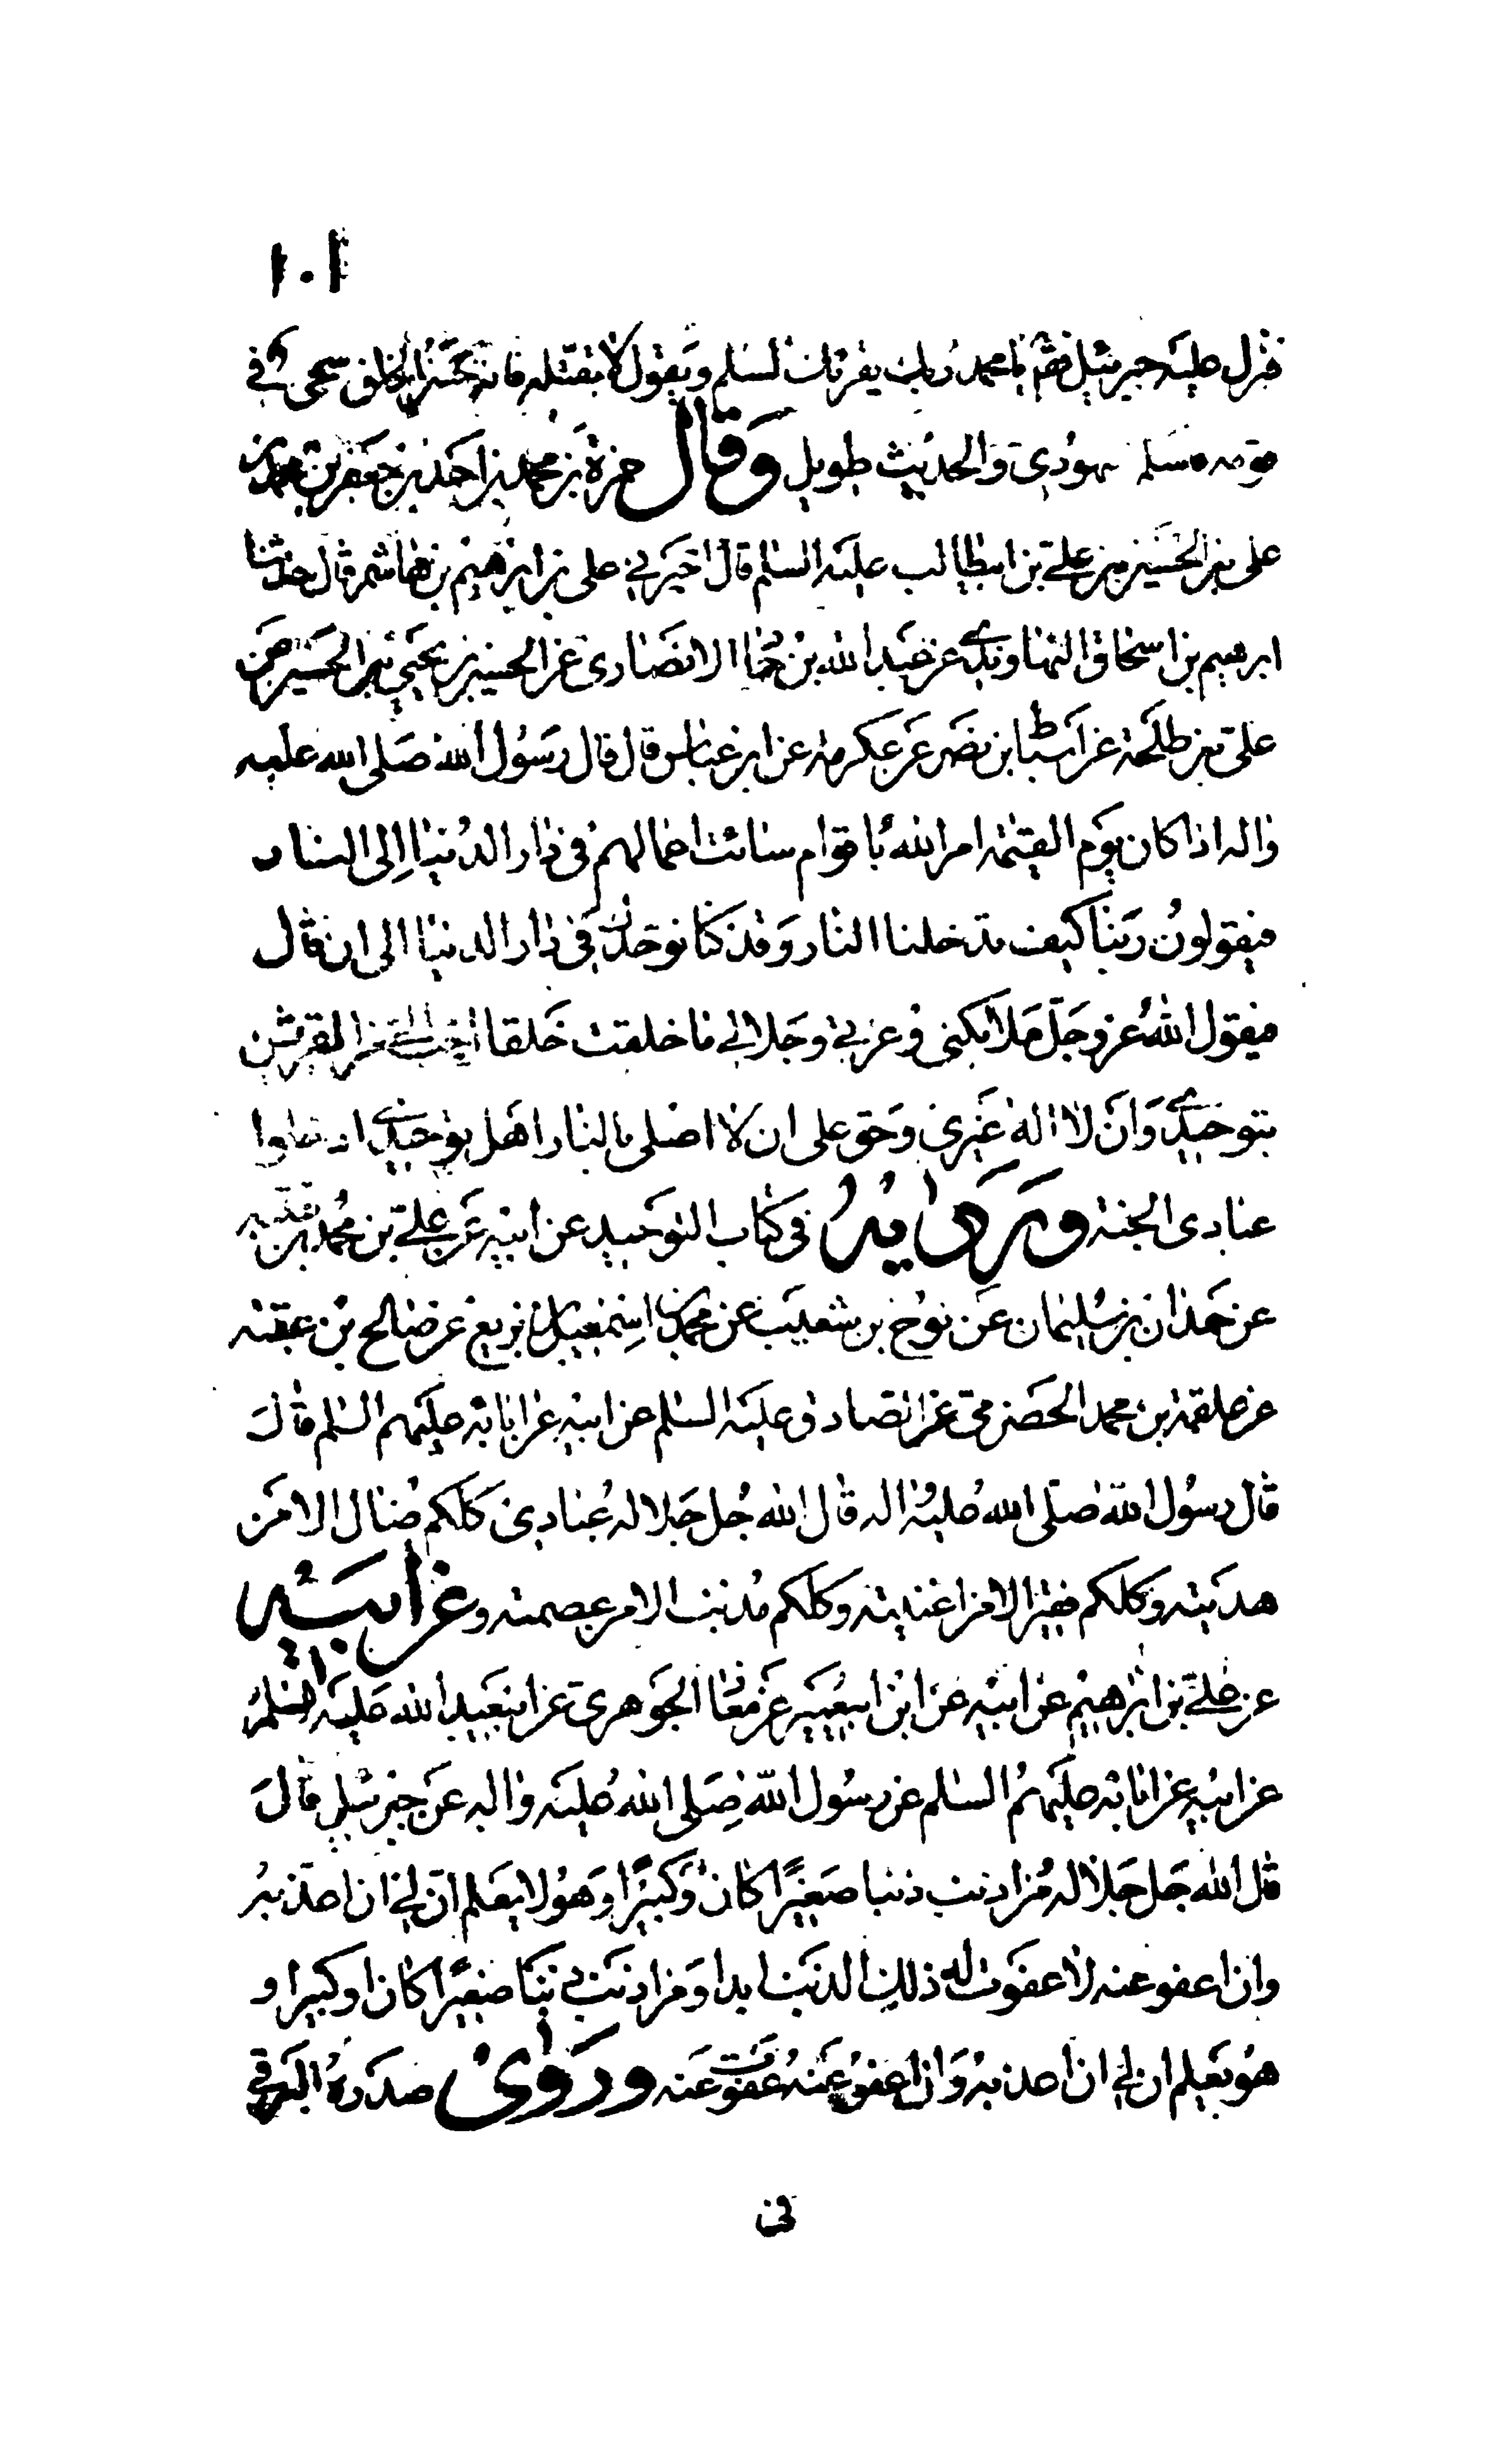 ١٠١
فنزل عليه جبرئيل فقال يا محمد ربك يقرئك السلم ويقول لا تقتله فانه حسن الخلق سخى في
قومه فاسلم اليهودي والحديث طويل وقال حمزة بن محمد بن احمد بن جعفر بن محمد بن
على بن الحسين بن علي بن ابيطالب عليه السلم قال اخبرني على بن ابرهيم بن هاشم قال حدثنا
ابرهيم بن اسحاق النهاوندي عن عبد الله بن حماد الانصارى عن الحسين بن يحيي بن الحسين عن
على بن طلحة عن اسباط بن نصر عن عكرمة عن ابن عباس قال قال رسول الله صلى الله عليه
واله اذا كان يوم القيمة امر الله باقوام سائت اعمالهم في دار الدنيا الى النار
فيقولون ربنا كيف تدخلنا النار وقد كنا نوحدك في دار الدنيا الى ان قال
فيقول الله عز وجل ملائكتى وعزتي وجلالي ما خلقت خلقا احب الي من المقرين
بتوحيدي وان لا اله غيري وحق على ان لا اصلى بالنار اهل توحيدي ادخلوا
عبادى الجنة ورواية في كتاب التوحيد عن ابيه عن علي بن محمد بن قتيبه
عن حمدان بن سليمان عن نوح بن شعيب عن محمد بن اسمعيل بن بزيع عن صالح بن عقبه
عن علقمة بن محمد الحضرمى عن الصادق عليه السلم عن ابيه عن ابائه عليهم السلم قال
قال رسول الله صلى الله عليه واله قال الله جل جلاله عبادي كلكم ضال الا من
هديته وكلكم فقير الا من اغنيته وكلكم مذنب الا من عصمته وعن ابيه
عن علي بن ابرهيم عن ابيه عن ابن ابيعمير عن معاذ الجوهرى عن ابيعبد الله عليه السلم
عن ابيه عن ابائه عليهم السلم عن رسول الله صلى الله عليه واله عن جبرئيل قال
قال الله جل جلاله من اذنب ذنبا صغيرا كان او كبيرا وهو لا يعلم ان لي ان اعذبه
وان اعفو عنه لا عفوت له ذلك الذنب ابدا ومن اذنب ذنبا صغيرا كان او كبيرا و
هو يعلم ان لي ان اعذبه وان اعفو عنه عفوت عنه وروى صدره البرقي
في